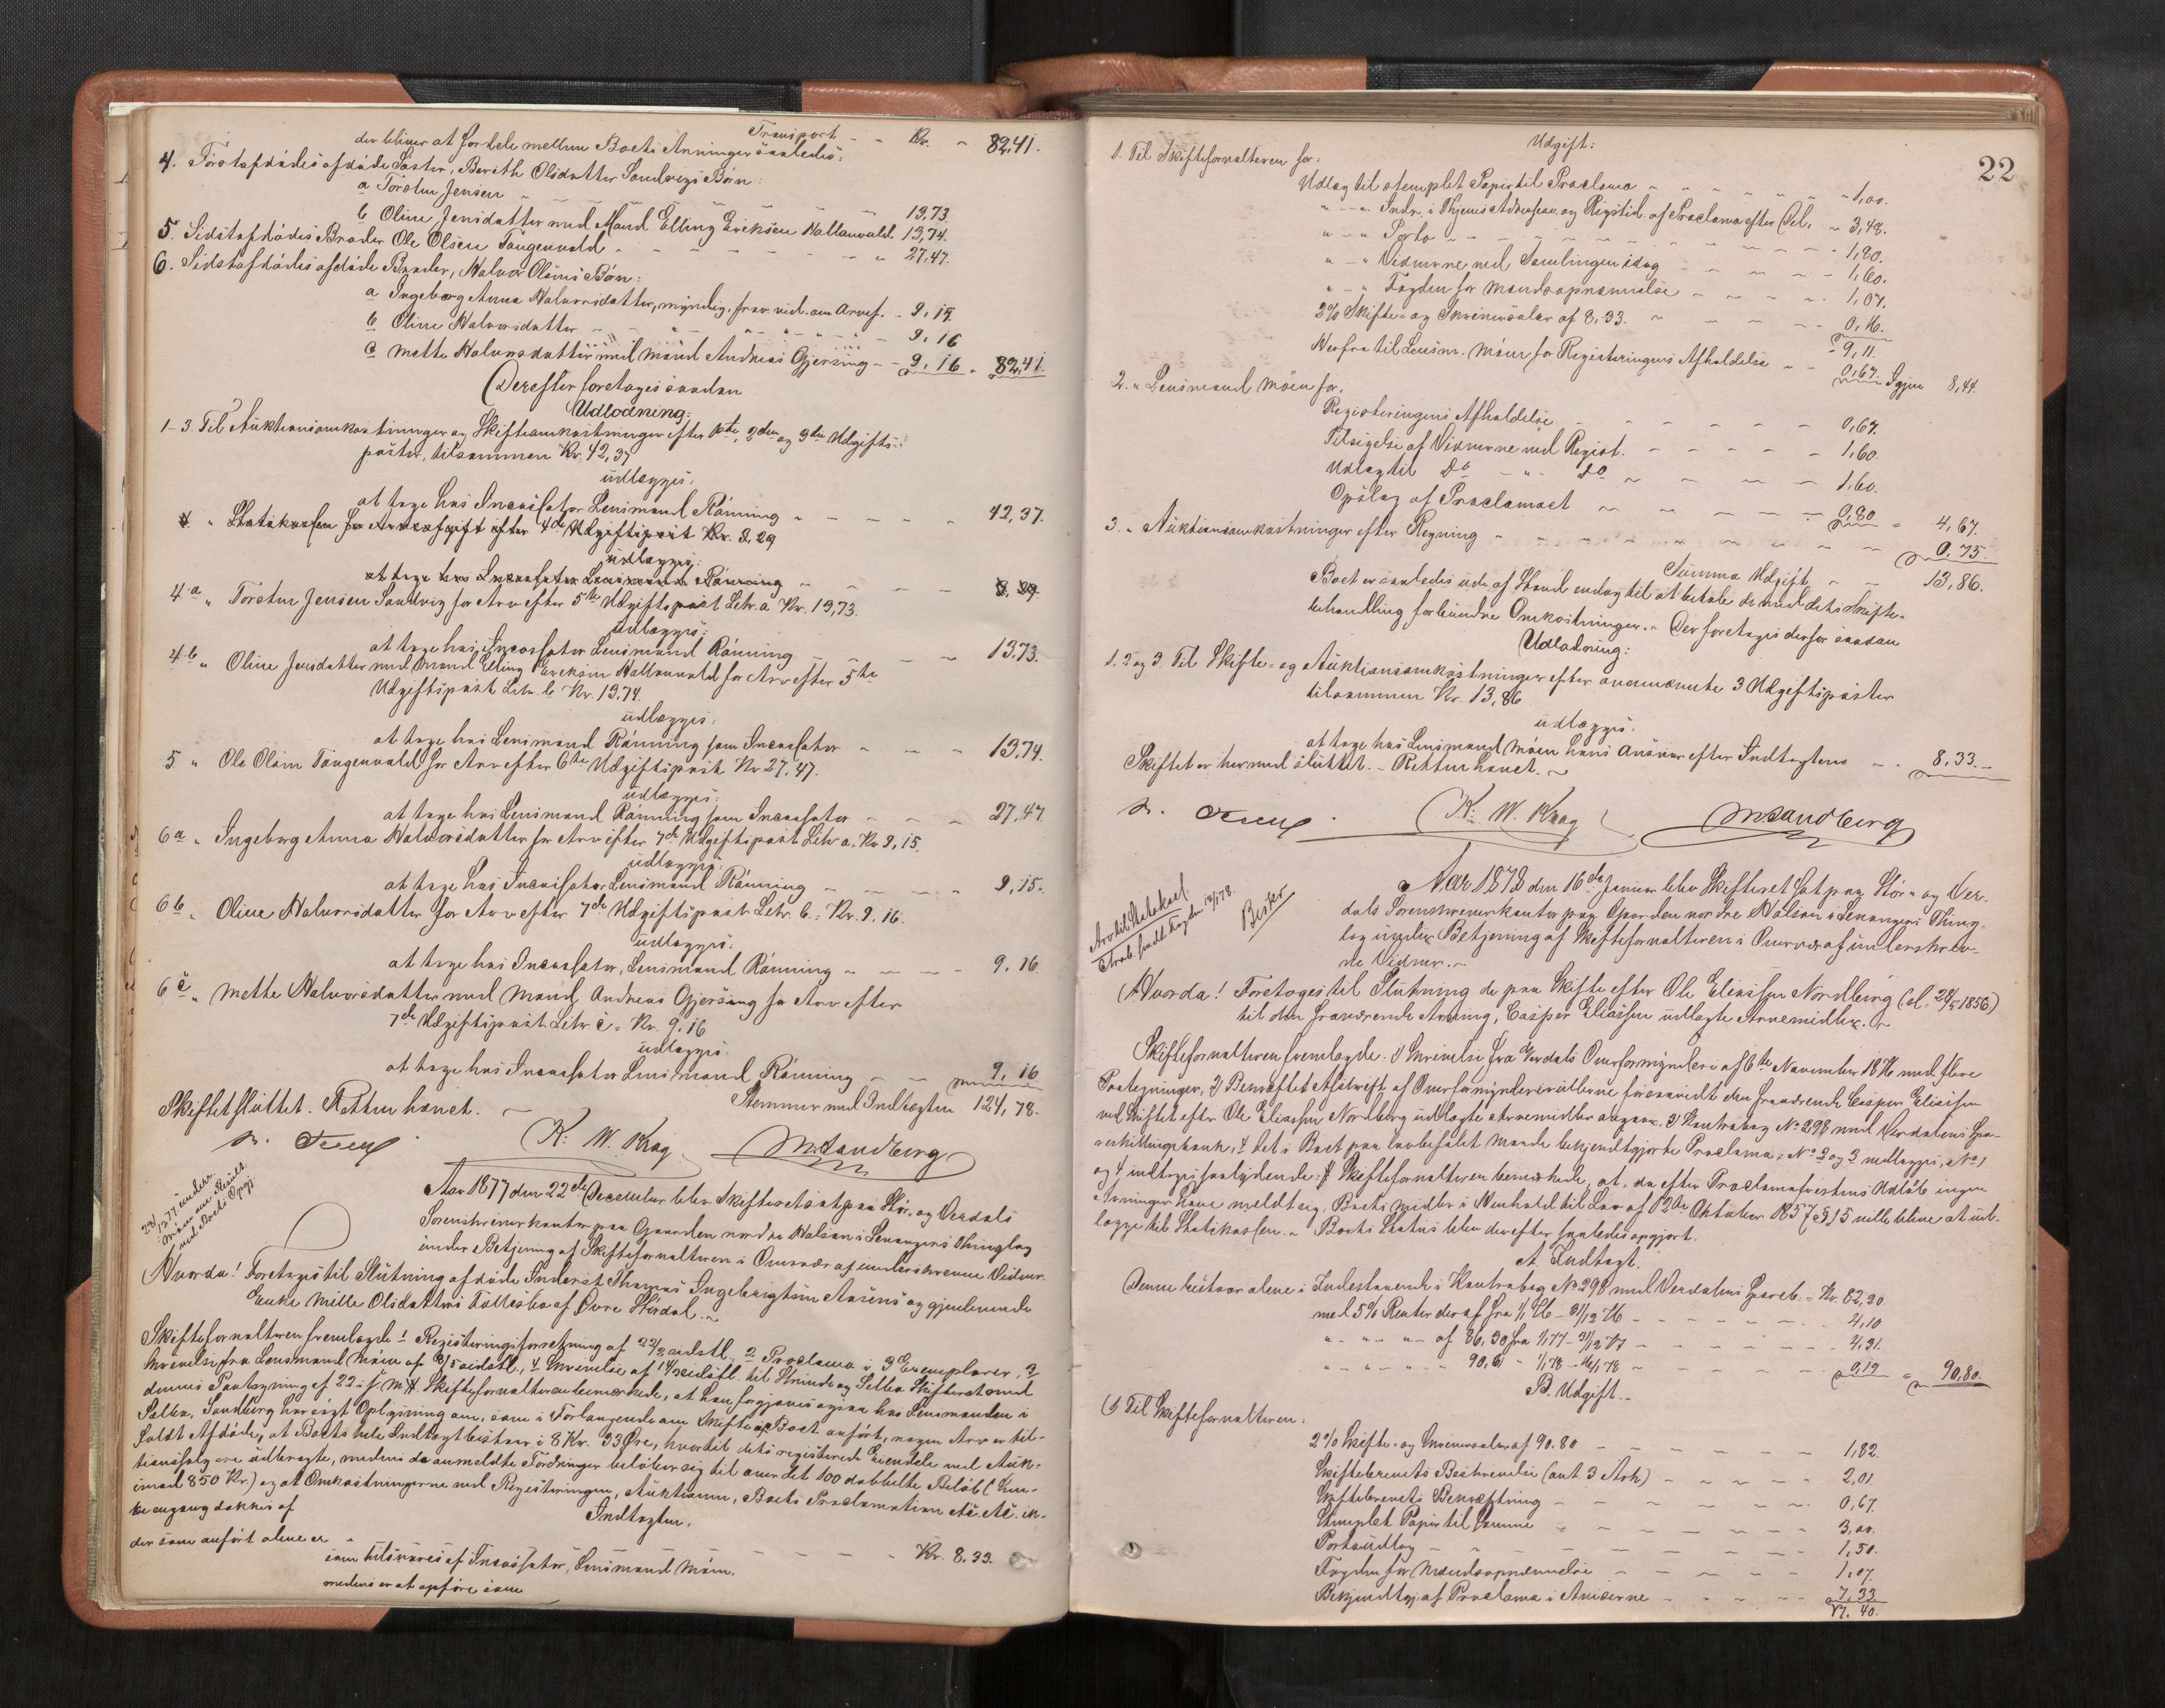 Transport - - Kr. - 82,41.
der bliver at fordele mellem Boets Arvinger saaledes:
4. Førstafdødes afdøde Søster, Bereth Olsdatter Sandvigs Børn:
a Torsten Jensen - - - - - 13,73.
b Oline Jensdatter med Mand Elling Eriksen Hallanvald 13,74.
5. Sidstafdødes Broder Ole Olsen Tangenvald - - - - - 27,47.
6. Sidstafdødes afdøde Broder, Halvor Olsens Børn:
a Ingeborg Anna Halvorsdatter, myndig, - 9,15.
b Oline Halvorsdatter - - - - - 9,16
c Mette Halvorsdatter med Mand Andreas Gjersing - - 9,16 - 82,41.
Derefter foretoges saadan
Udlodning:
1-3. Til Auktionsomkostninger og Skifteomkostninger efter 1ste, 2den og 3die Udgifts-
poster, tilsammen Kr. 42,37
udlægges:
at tage hos Incassator Lensmand Rønning - - - - - 42,37.
4 " Statskassen for Arveafgift efter 4de Udgiftspost Kr. 8,29
udlægges:
at tage hos Incassator Lensmand Rønning - - - 8,29
4a " Torsten Jensen Sandvig for Arv efter 5te Udgiftspost Litr. a Kr. 13,73.
udlægges:
at tage hos Incassator Lensmand Rønning - - - 13,73.
4b " Oline Jensdatter med Mand Elling Eriksen Hallanvald for Arv efter 5te
Udgiftspost Litr. b Kr. 13,74.
udlægges:
at tage hos Lensmand Rønning som Incassator - - - 13,74.
5 " Ole Olsen Tangenvald for Arv efter 6te Udgiftspost Kr. 27,47.
udlægges:
at tage hos Lensmand Rønning som Incassator - - - 27,47.
6a " Ingeborg Anna Halvorsdatter for Arv efter 7de Udgiftspost Litr. a. Kr. 9,15.
udlægges:
at tage hos Incassator Lensmand Rønning - - - - 9,15.
6b " Oline Halvorsdatter for Arv efter 7de Udgiftspost Litr. b. Kr. 9,16.
udlægges:
at tage hos Incassator, Lensmand Rønning - - - - 9,16.
6c " Mette Halvorsdatter med Mand Andreas Gjersing for Arv efter
7de Udgiftspost Litr. c. Kr. 9,16
udlægges.
at tage hos Incassator Lensmand Rønning - - 9,16
Stemmer med Indtægten 124,78.
Skiftet sluttet. Retten hævet.
K. W. Krag MSandberg
med Boets Opgj.
Aar 1877 den 22de December blev Skifteret sat paa Stør- og Verdals
Sorenskriverkontor paa Gaarden nordre Halsan i Levangers Thinglag
under Betjening af Skifteforvalteren i Overvær af underskrevne Vidner.
Hvorda! Foretoges til Slutning afdøde Inderst Thomas Ingebrigtsen Aasens og gjenlevende
Enke Mille Olsdatters Fællesbo af Øvre Stjørdal.
Skifteforvalteren fremlagde 1 Registreringsforretning af 22/2 sidstl. 2 Proclama i 3 Exemplarer, 3
Skrivelse fra Lensmand Moen af 8/5 sidstl., 4 Skrivelse af 14/ sidstl. til Strinde og Selbu Skifteret med
dennes Paategning af 22 s. M. Skifteforvalteren bemærkede, at han forgjæves ogsaa hos Lensmanden i
Selbu, Sandberg har søgt Oplysning om, som i Forlangende om Skifte i Boet anført, nogen Arv er til-
faldt Afdøde, at Boets hele Indtægt bestaar i 8 Kr. 33 Øre, hvortil dets registrerede Eiendele ved Auk-
tionssalg ere udbragte, medens de anmeldte Fordringer beløber sig til over det 100 dobbelte Beløb (hen-
imod 850 Kr.) og at Omkostningerne med Registreringen, Auktionen, Boets Proclamation etc. etc. ik-
ke engang dækkes af
Indtægten,
der som anført alene er - - - - - - Kr. 8.33.
som tilsvares af Incassator, Lensmand Moen.
medens er at opføre som
22
Udgift:
1. Til Skifteforvalteren for:
Udlæg til stemplet Papir til Proclama - - - - - 1,00.
" - " Indr. i Thjems Adresseav. og Rigstid. af Proclama efter Del. - 3,48.
" - " Porto - - - - - - 1,80.
" - " Vidnerne ved Samlingen idag - - - - - 1,60.
" - " Fogden for Mandsopnævnelse - - - - 1,07.
2% Skifte- og Skriversalær af 8,33. - - - - 0,16.
9,11.
Herfra til Lensm. Moen for Registreringens Afholdelse - - 0,67. Igjen 8,44.
2. " Lensmand Moen for:
Registreringens Afholdelse - - - - - 0,67.
Tilsigelse af Vidnerne ved Regist. - - - - - 1,60.
Udlæg til do - " - do - - - - 1,60.
Opslag af Proclamaet - - - - - 0,80 - 4,67.
3. " Auktionsomkostninger efter Regning - - - - - - 0,75.
Summa Udgift, - - 13,86.
Boet er saaledes ude af Stand endog til at betale de med dets Skifte-
behandling forbundne Omkostninger. - Der foretoges derfor saadan
Udlodning:
1. 2 og 3. Til Skifte- og Auktionsomkostninger efter ovennævnte 3 Udgiftsposter
tilsammen Kr. 13,86
udlægges.
at tage hos Lensmand Moen hans Ansvar efter Indtægten - - 8,33.
Skiftet er hermed sluttet. - Retten hævet.
K. W. Krag MSandberg
Aar 1878 den 16de Januar blev Skifteret sat paa Stør- og Ver-
dals Sorenskriverkontor paa Gaarden nordre Halsan i Levangers Thing-
lag under Betjening af Skifteforvalteren i Overvær af underskrev-
ne Vidner.
Hvorda! Foretoges til Slutning de paa Skifte efter Ole Eliassen Nordberg (sl. 28/5 1856)
til den fraværende Arving, Casper Eliassen udlagte Arvemidler.
Skifteforvalteren fremlagde: 1) Skrivelse fra Verdals Overformynderi af 6te November 1876 med flere
Paategninger, 2) Bekræftet Afskrift af Overformynderirullerne forsaavidt den fraværende Casper Eliassen
ved Skiftet efter Ole Eliassen Nordberg udlagte Arvemidler angaar, 3) Kontrabog No 298 med Verdalens Spa-
reskillingsbank, 4 det i Boet paa lovbefalet Maade bekjendtgjorte Proclama; No 2 og 3 vedlægges, No 1
og 4 indtages saalydende: # Skifteforvalteren bemærkede, at, da efter Proclamafristens Udløb ingen
Arvinger have meldt sig, Boets Midler i Henhold til Lov af 12te Oktober 1857 § 15 ville blive at ud-
lægge til Statskassen. - Boets Status blev derefter saaledes opgjort.
A. Indtægt.
Denne bestaar alene i Indestaaende i Kontrabog No 298 med Verdalens Spareb. - Kr. 82,20
med 5% Renter deraf fra 1/1 76 - 31/12 76 - - - - 4,10
" - " - " - af 86,30 fra 1/1 77 - 31/12 77 - - - - 4,31.
" - " - " - 90,61 - 1/1 78 - 16/1 78 - - - 0,19 - 90,80.
B. Udgift.
1) Til Skifteforvalteren:
2% Skifte- og Skriversalær af 90.80 - - - - - 1,82.
Skiftebrevets Beskrivelse (ant. 3 Ark) - - - - 2,01.
Skiftebrevets Bekræftning - - - - - 0,67.
Stemplet Papir til samme - - - - - 3,00.
Portoudlæg - - - - - 1,50.
Fogden for Mandsopnævnelse - - - - 1,07.
Bekjendtgj. af Proclama i Aviserne - - - - 7,33
17,40.